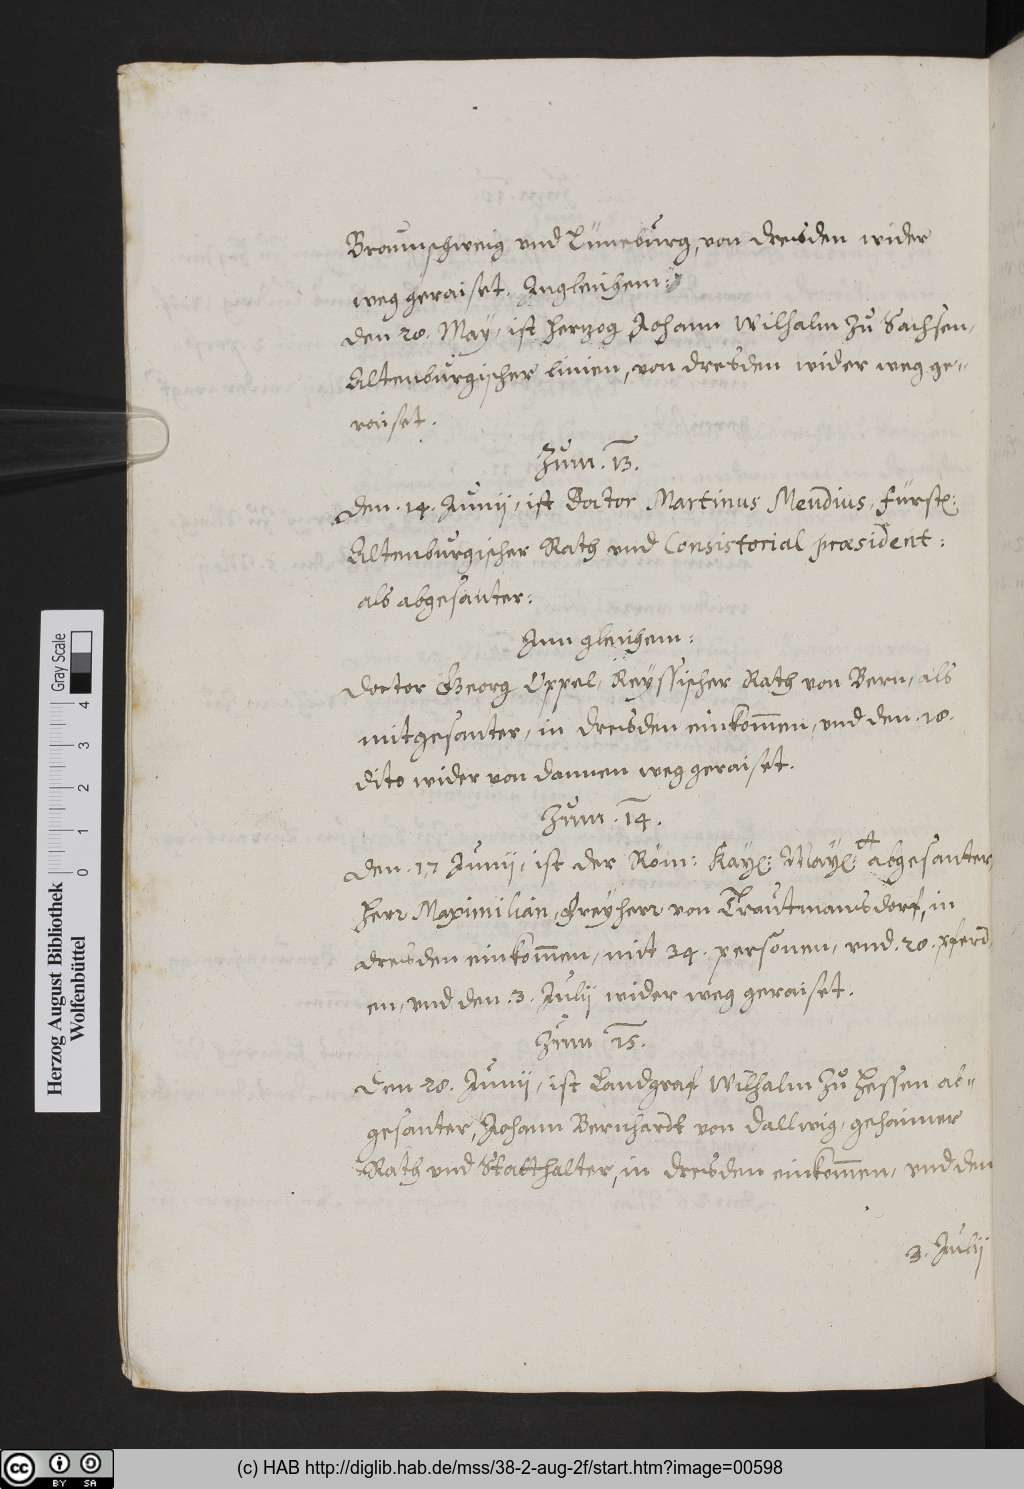 Braunschweig vnd Lüneburg, von dresden wider
weg geraiset. Ingleichem:
den 20. May, ist hertzog Johann Wilhalm zu Sachsen,
Altenburgischer linien, von dresden wider weg ge-
raiset.
Zum. 13.
den. 14. Junii, ist Doctor Martinus Mendius, Fürstl:
Altenburgischer Rath vnd Consistorial præsident:
als abgesanter:
Inn gleichem:
doctor Georg Oppel, Reyssischer Rath von Bern, als
mitgesanter, in dresden einkom̄en, vnd den. 18.
dito wider von dannen weg geraiset.
Zum. 14.
den. 17 Junii, ist der Röm: Kayl: Mayl: abgesanter,
Herr Maximilian, Freyherr von Trautmansdorf, in
dresden einkom̄en, mit 34. personen, vnd. 20. pferd
en, vnd den. 3. Julii wider weg geraiset.
Zum 15.
den 28. Junii, ist Landgraf Wilhalm zu Hessen ab-
gesanter, Johann Bernhardt von Dallwig, gehaimer
Rath vnd Statthalter, in dresden einkom̄en, vnd den
3. Julii
Herzog August Bibliothek
Wolfenbüttel
0 1 2 3 4
Gray Scale
cc BY SA
(c) HAB http://diglib.hab.de/mss/38-2-aug-2f/start.htm?image=00598